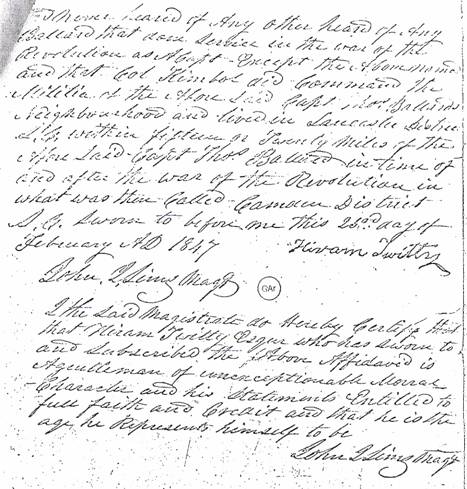 I never heard of Any other heard of Any
Ballard that done Service in the war of the
Revolution as A Capt Except the Above
and that Col Kimbol did Command the
Militia of the Afore Said Capt Thos Ballards
Neighbourhood and lived in Lancaster District
S.C. within fifteen or Twenty Miles of the
Afore Said Capt Thos Ballard in time of
and after the war of the Revolution in
what was then Called Camden District
S.C. Sworn to before me this 23rd day of
February AD 1847 Hiram Twitty
John Q Sims Magt
GAr
I the Said Magistrate do Hereby Certify that
that Hiram Twitty Esqur who has Sworn to
and Subscribed the Above Affidavid is
A gentleman of unexceptionable Morral
Character and his Statements Entitled to
full faith and Credit and that he is the
age he Represents himself to be
John Q Sims Magt